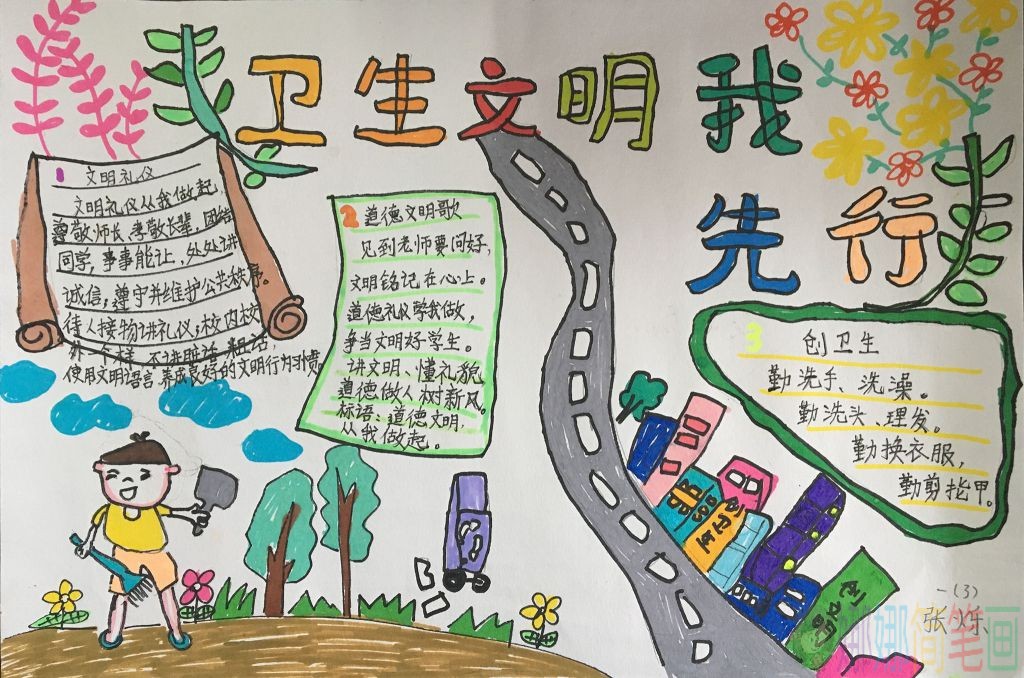 卫生文明我
先行
1 文明礼仪
文明礼仪从我做起,
尊敬师长、孝敬长辈、团结
同学,事事能让、处处讲
诚信,遵守并维护公共秩序。
待人接物讲礼仪,校内校
外一个样,不讲脏话、粗话,
使用文明语言养成良好的文明行为习惯
2 道德文明歌
见到老师要问好,
文明铭记在心上。
道德礼仪帮我做,
争当文明好学生。
讲文明、懂礼貌
道德做人树新风。
标语:道德文明,
从我做起。
3 创卫生
勤洗手、洗澡。
勤洗头、理发。
勤换衣服,
勤剪指甲。
一(3)
张烁
简笔画